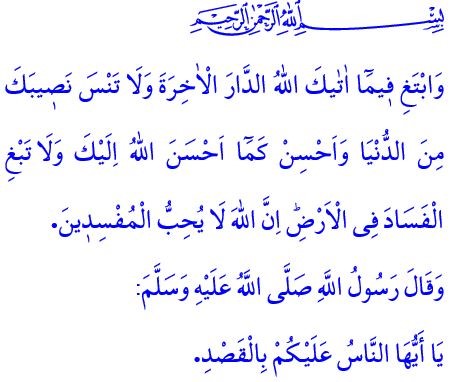 بِسْمِ اللهِ الرَّحْمٰنِ الرَّحِيمِ
وَابْتَغِ فٖيمَٓا اٰتٰيكَ اللهُ الدَّارَ الْاٰخِرَةَ وَلَا تَنْسَ نَصٖيبَكَ
مِنَ الدُّنْيَا وَاَحْسِنْ كَمَٓا اَحْسَنَ اللهُ اِلَيْكَ وَلَا تَبْغِ
الْفَسَادَ فِى الْاَرْضِۜ اِنَّ اللهَ لَا يُحِبُّ الْمُفْسِدٖينَ.
وَقَالَ رَسُولُ اللَّهِ صَلَّى اللَّهُ عَلَيْهِ وَسَلَّمَ:
يَا أَيُّهَا النَّاسُ عَلَيْكُمْ بِالْقَصْدِ.